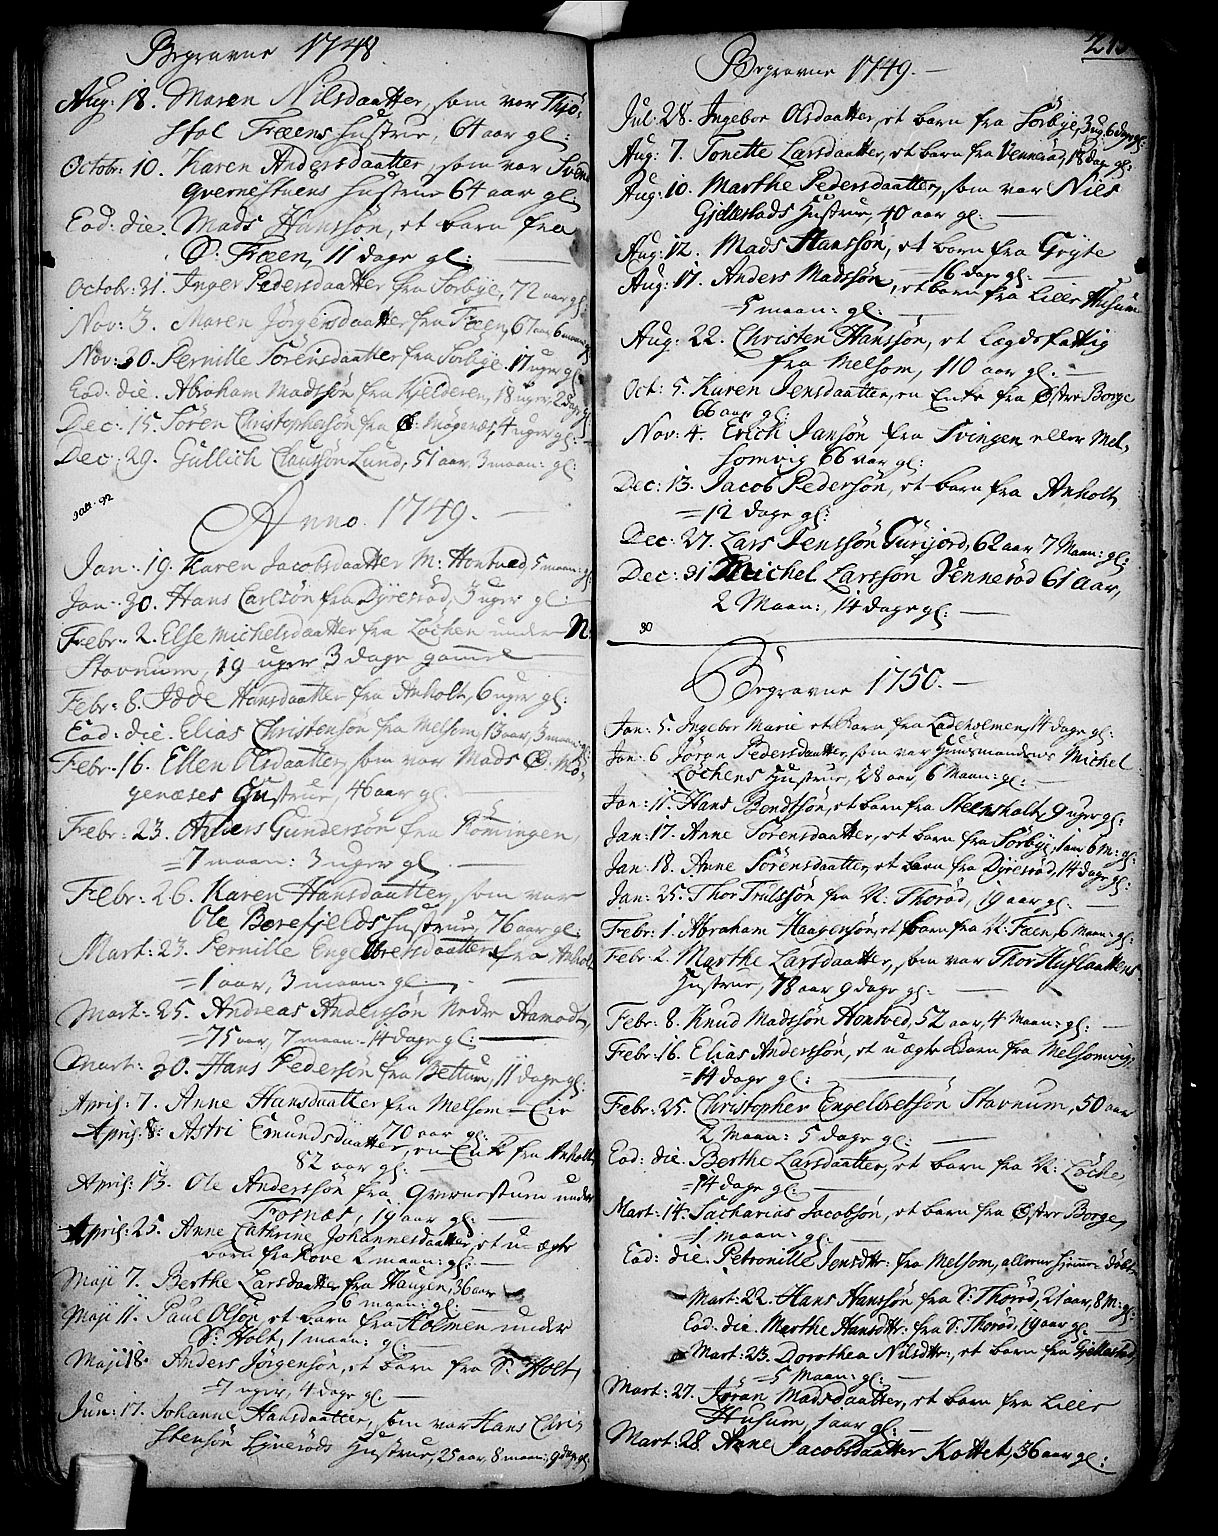 Begravne 1748.
Aug: 18. Maren Nilsdaatter, som var Thjø-
stol Fræens Hustrue, 64 aar gl:
Octobr: 10. Karen Andersdaatter, som var Svend
Qvernestuens Hustrue 64 aar gl:
Eod: die. Mads Hanssøn, et barn fra
S: Fræen, 11 dage gl:
Octobr: 31. Inger Pedersdaatter fra Sørbye, 72 aar gl:
Nov: 3. Maren Jørgensdaatter fra Fræen, 67 aar 6 maan: gl
Nov: 30. Pernille Sørensdaatter fra Sørbye 17 uger gl:
Eod: die. Abraham Madssøn fra Kjelderen, 18 uger 2 dage gl:
Dec: 15. Søren Christophersøn fra Ø: Møgenæs, 4 uger gl:
Dec: 29. Gullich Claussøn Lund, 51 aar, 3 maan: gl:
Anno 1749.
Jan: 19. Karen Jacobsdaatter M: Hontved 5 maan: gl
Jan: 30. Hans Carlsøn fra Dyresrød, 3 uger gl:
Febr: 2. Else Michelsdaatter fra Løchen under N:
Stavnum, 19 uger 3 dage gamel
Febr: 8. Idde Hansdaatter fra Anholt, 6 uger gl:
Eod: die. Elias Christensøn fra Melsom, 13 aar, 3 maan: gl:
Febr: 16. Ellen Olsdaatter, som var Mads Ø: Mø-
genæses Hustrue, 46 aar gl:
Febr: 23. Anders Gundersøn fra Rømingen,
=7 maan: 3 uger gl.
Febr: 26. Karen Hansdaatter, som var
Ole Berefjelds Hustrue, 76 aar gl:
Mart: 23. Pernille Engelbretsdaatter fra Anholt
=1 aar, 3 maan: gl:
Mart: 25. Andreas Anderssøn Nedre Aamodt,
=75 aar, 7 maan: 14 dage gl:
Mart: 30. Hans Pedersøn fra Bettum, 11 dage gl:
April: 7. Anne Hansdaatter fra Melsom-Eie
70 aar gl:
April: 8: Astri Emundsdaatter, en Enke fra Anholt
82 aar gl:
April: 13. Ole Anderssøn fra Qvernestuen under
Fosnæs, 19 aar gl:
April: 25. Anne Cathrine Johannesdaatter, et u-ægte
barn fra Rove 2 maan: gl:
Maji 7. Berthe Larsdaatter fra Haugen, 36 aar
6 maan: gl:
Maji 11. Paul Olsøn, et barn fra Holmen under
S: Holt, 1 maan: gl:
Maji 18. Anders Jørgensøn, et barn fra S: Holt,
=7 uger, 4 dage gl.
Jun: 17. Johanne Hansdaatter, som var Hans Chri-
stensøn Hustrue, 25 aar, 8 maan: 9 dage gl:
Begravne 1749.
Jul: 28. Ingebor Olsdaatter, et barn fra Sørbye, 3 ug. 6 dage gl:
Aug: 7. Tonette Larsdaatter, et barn fra Vennerød, 18 dag gl:
Aug: 10. Marthe Pedersdaatter, som var Nils
Gjelestads Hustrue, 40 aar gl:
Aug: 12. Mads Hanssøn, et barn fra Gryte
16 dage gl:
Aug: 17. Anders Madssøn, et barn fra Lille Husum
=5 maan: gl:
Aug: 22. Christen Hanssøn, et Lægdsfattig
fra Melsom, 110 aar gl:
Oct: 5. Karen Jensdaatter, en Enke fra Østre Borge
66 aar gl:
Nov: 4. Erich Jansøn fra Svingen eller Mel-
somvig 66 aar gl:
Dec: 13. Jacob Pedersøn, et barn fra Anholt,
=12 dage gl:
Dec: 27. Lars Jenssøn Gurijord, 62 aar 7 Maan: gl:
Dec: 31 Michel Larssøn Vennerød 61 aar,
2 Maan: 14 dage gl:
30
Begravne 1750.
Jan: 5. Ingebor Marie et Barn fra Ladeholmen, 14 dage gl:
Jan: 6 Jørgn Pedersdaatter, som var Huusmandens Michel
Løchens Hustrue, 28 aar, 6 Maan: gl:
Jan: 11. Hans Bendtsøn, et barn fra Steensholt, 9 uger gl:
Jan: 17. Anne Sørensdaatter, et barn fra Sørbye, 1 aar 6 M: gl:
Jan: 18. Anne Sørensdaatter, et barn fra Dyresrød, 14 dage gl:
Jan: 25. Thor Trulssøn fra N: Thorød, 19 aar gl:
Febr: 1. Abraham Haagensøn, et barn fra N: Faen, 6 Maan: gl:
Febr: 2. Marthe Larsdaatter, som var Thor Huflaattens
Hustrue, 78 aar 9 dage gl:
Febr: 8. Knud Madssøn Hontved, 52 aar, 4 Maan: gl:
Febr: 16. Elias Anderssøn, et uægte Barn fra Melsomvig,
=14 dage gl:
Febr: 25. Christopher Engelbetsøn Stavnum, 50 aar
2 Maan: 5 dage gl:
Eod: die. Berthe Larsdaatter, et barn fra N: Løche
=14 dage gl:
Mart: 14. Sacharias Jacobsøn, et barn fra Østre Borge,
=1 maan: gl:
Eod: die. Petronille Jensdtr: fra Melsom, allene hjemme døbt
Mart: 22. Hans Hanssøn fra S: Thorød, 21 aar, 8 M: gl:
Eod: die. Marthe Hansdtr: fra S: Thorød, 19 aar gl:
Mart: 23. Dorothea Nilsdtr:, et barn fra Gjellestad,
=5 Maan: gl:
Mart: 27. Jøran Madsdaatter, et barn fra Lille
Husum, 1 aar gl:
Mart: 28. Anne Jacobsdaatter Kottet, 36 aar gl: